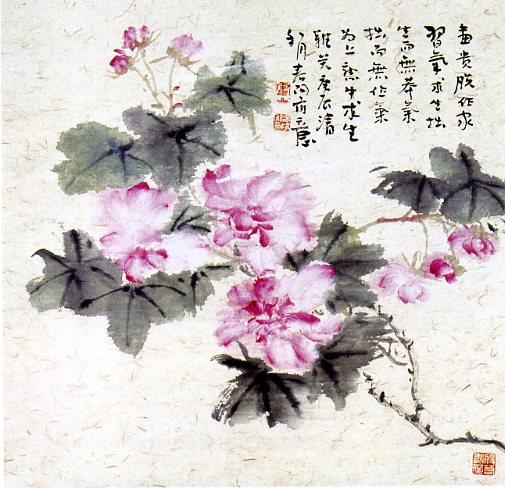 畫貴脫作家
習氣求生拙
生而無莽氣
拙而無作氣
為上熟中求生
難矣庚辰清
和月